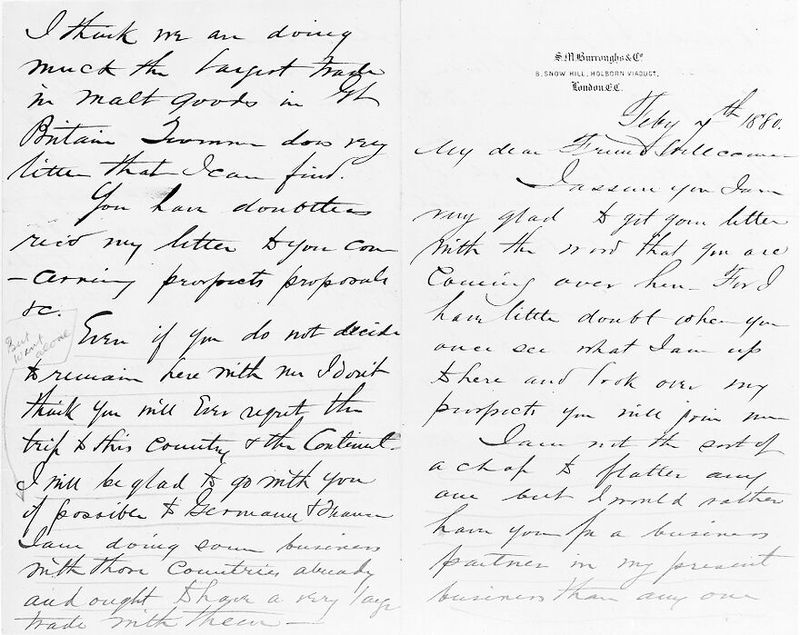 I think we are doing
much the largest trade
in malt goods in Gt
Britain Trommer does very
little that I can find.
You have doubtless
rec'd my letter to you con
-cerning prospects proposals
&c.
But
went
alone
Even if you do not decide
to remain here with me I don't
think you will Ever regret the
trip to this country & the Continent-
I will be glad to go with you
if possible to Germany & France
I am doing some business
with those Countries already
and ought to have a very large
trade with them —
S.M. Burroughs & Co.
8, SNOW HILL, HOLBORN VIADUCT,
London E.C.
Feby 7th 1880.
My dear Friend Wellcome
I assure you I am
very glad to get your letter
with the word that you are
Coming over here- For I
have little doubt when you
once see what I am up
to here and look over my
prospects you will join me
I am not the sort of
a chap to flatter any
one but I would rather
have you for a business
partner in my present
business than any one